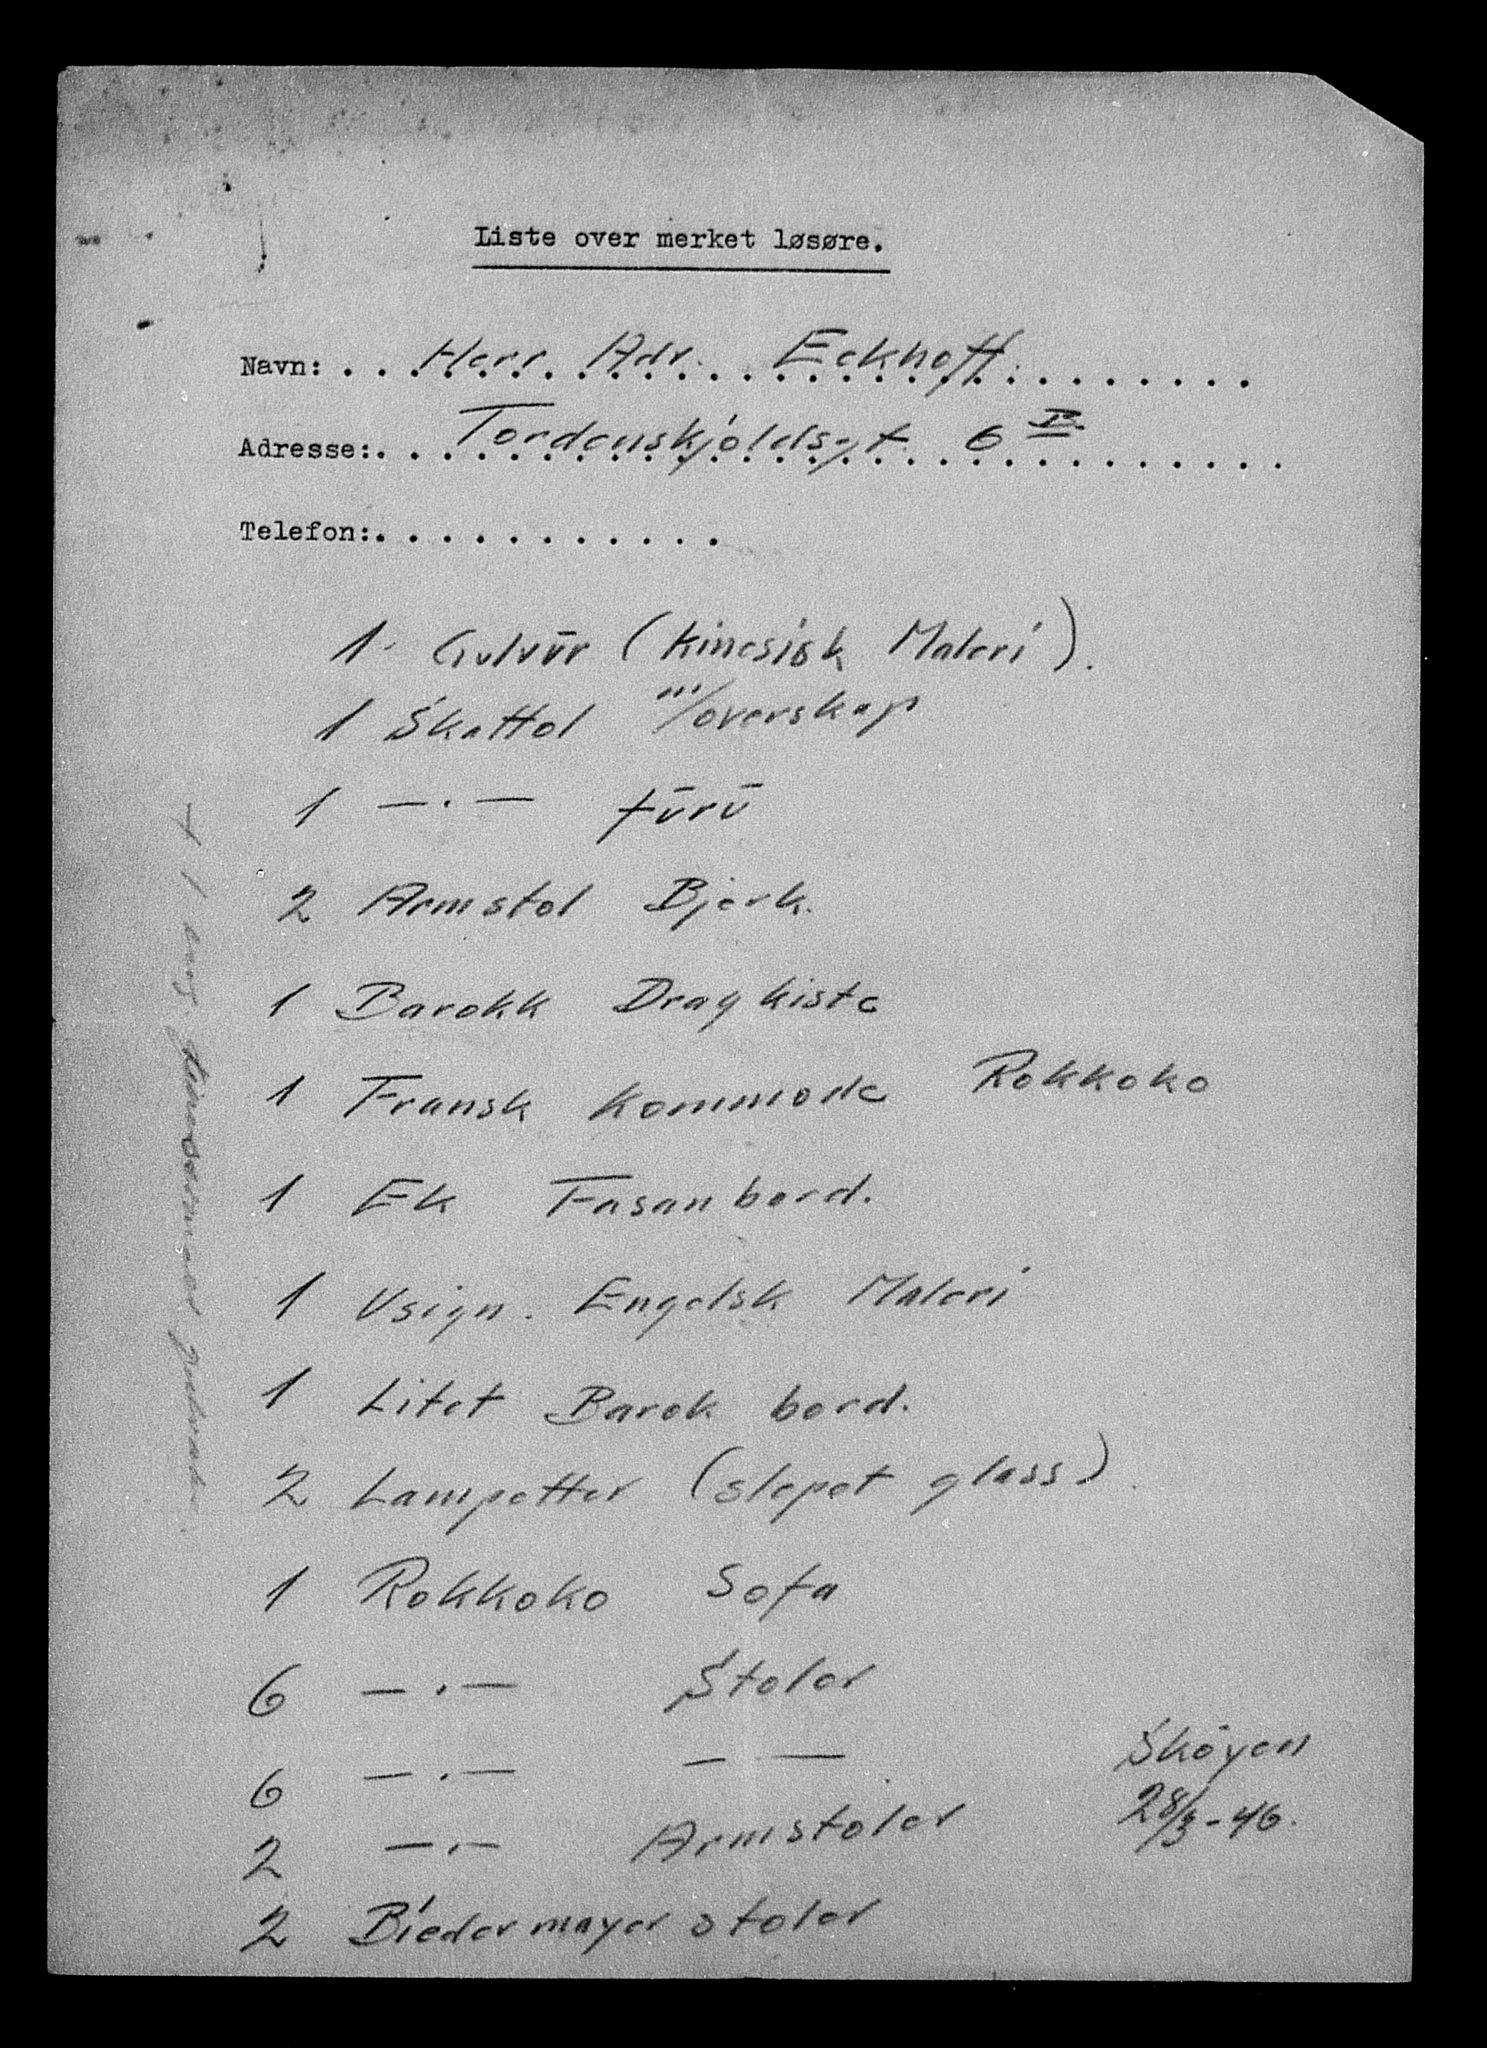 Liste over merket løsøre.
Navn: Herr Adv. Eckhoff
Adresse: Tordenskjoldsgt. 6 B.
Telefon:
1 Gulvūr (Kinesisk Maleri).
1 Skattol m/overskap
1 —·— fūrū
2 Armstol Bjerk.
1 Barokk Dragkiste
1 Fransk Kommode Rokkoko
1 Ek Fasanbord.
1 Usign. Engelsk Maleri
1 Litet Barok bord.
2 Lampetter (slepet glass).
1 Rokkoko Sofa
6 —·— Stoler
6 —·— — —
2 —·— Armstoler
2 Biedermayer stoler
Sköyen
28/3-46.
+ 1 eng.